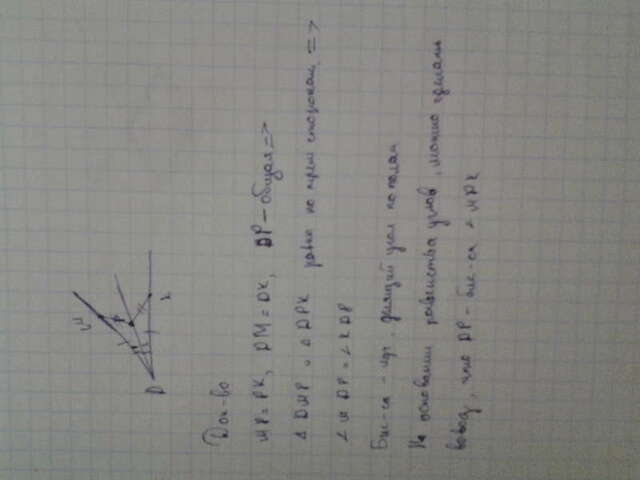 M
P
D
K
Док-во
MP = PK, DM = DK, DP - общая =>
Δ DMP = Δ DPK равны по трем сторонам =>
∠ MDP = ∠ KDP
Бис-са - луч, делящий угол пополам
На основании равенства углов, можно сделать
вывод, что DP - бис-са ∠ MDK